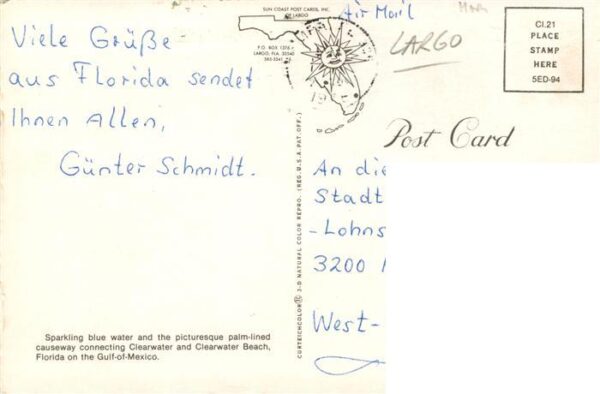 Viele Grüße
aus Florida sendet
Ihnen Allen,
Günter Schmidt.
Sparkling blue water and the picturesque palm-lined
causeway connecting Clearwater and Clearwater Beach,
Florida on the Gulf-of-Mexico.
SUN COAST POST CARDS, INC.
OF LARGO
P.O. BOX 1376
LARGO, FLA. 33540
CURTEICHCOLOR® 3-D NATURAL COLOR REPRO. (REG. U.S.A. PAT. OFF.)
Air Mail
LARGO
CI.21
PLACE
STAMP
HERE
5ED-94
Post Card
An die
Stadt
-Lohns
3200
West-